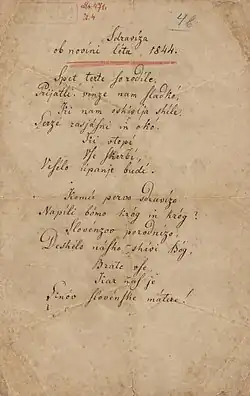 Ms 471,
N. 4
48
Sdraviza
ob novini léta 1844.
Spet terte so rodile,
Prijatli vinze nam sladkó,
Ki nam oshivlja shile,
Serzé rasjásni in okó.
Ki otopi
Vse skerbí,
V serzi upanje budí.
Komú pervo sdravizo
Napíli bómo króg in króg?
Slovenzov porodnízo,
Deshélo náſho shívi Bóg,
Brate vse
Kar naſ je
Sinóv slovénshe mátere!